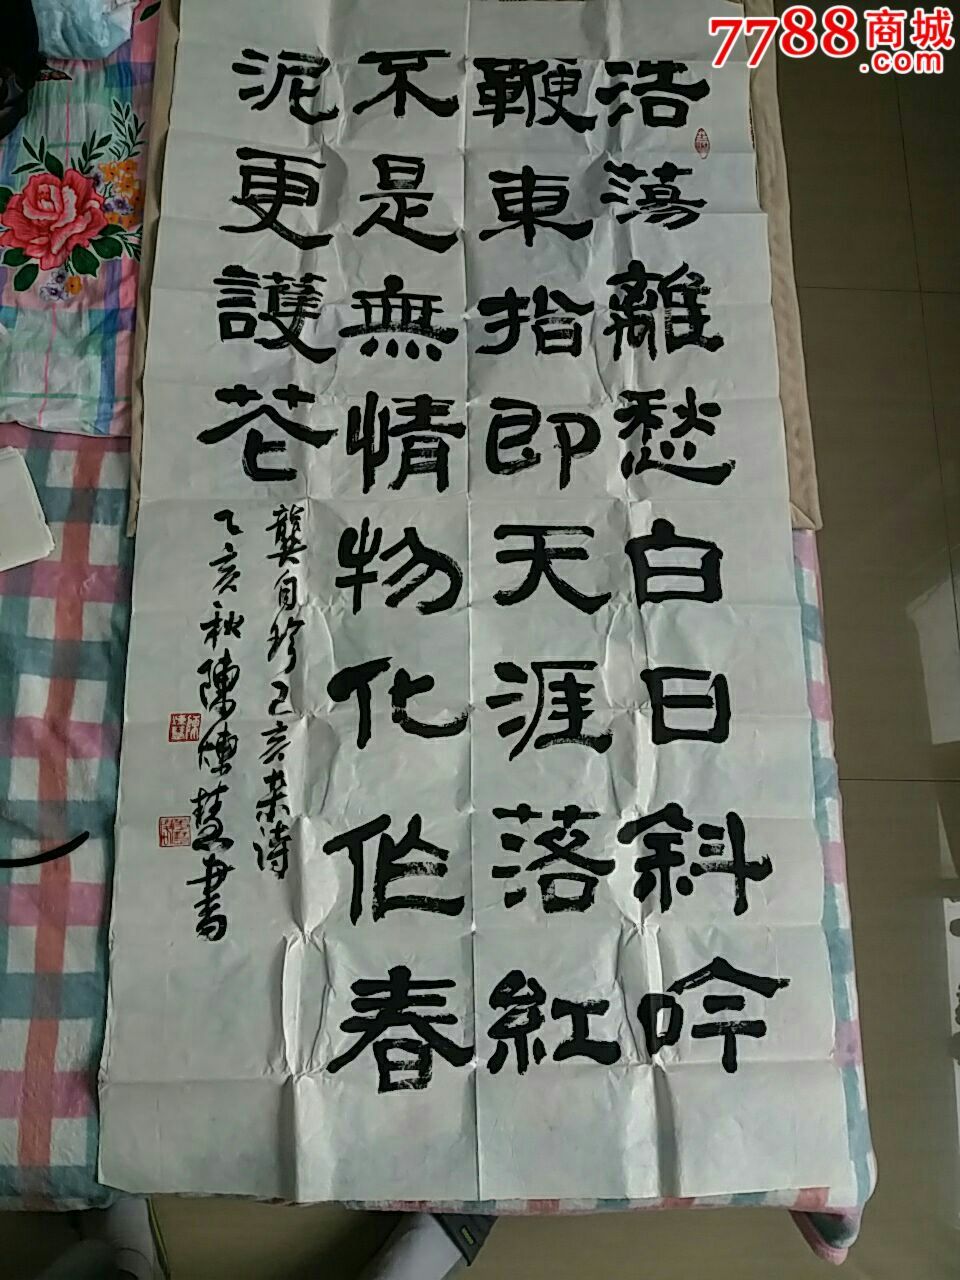 7788商城
.com
浩蕩離愁白日斜吟
鞭東指即天涯落紅
不是無情物化作春
泥更護花
龔自珍己亥杂诗
乙亥秋陳慧書